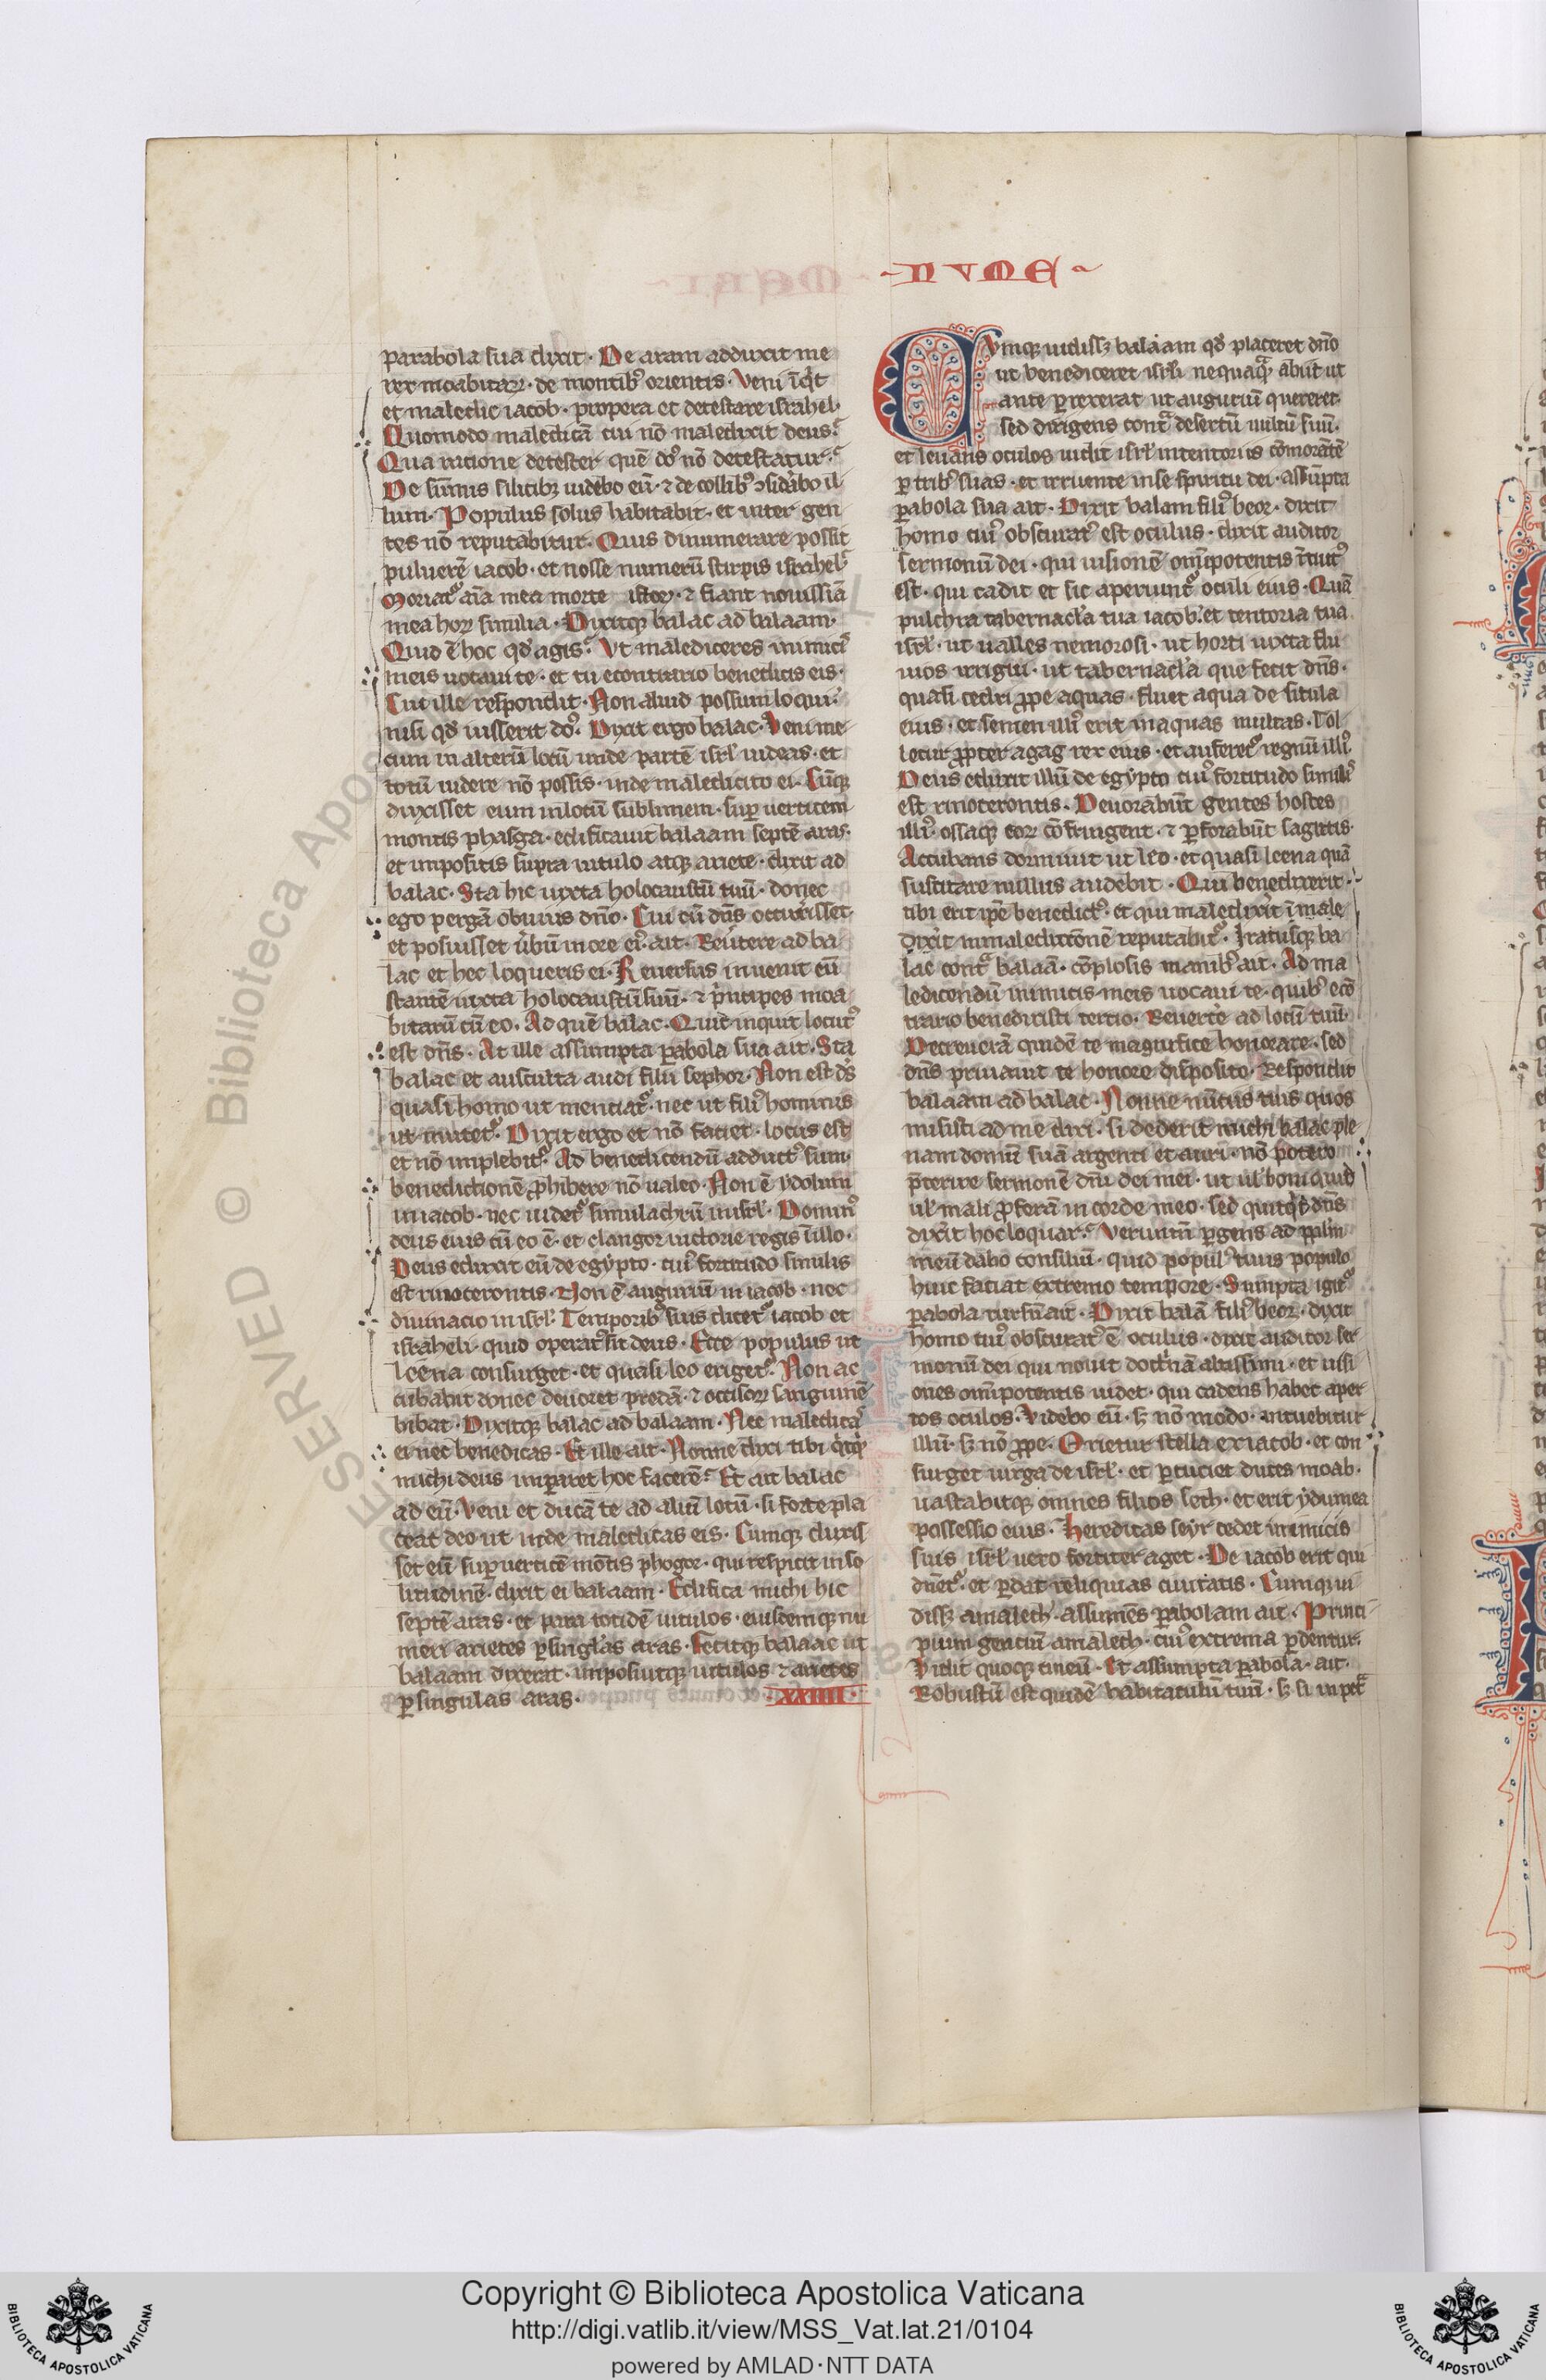 NVME
parabola sua dixit. De aram adduxit me
rex moabitaꝝ. de montibꝰ orientis. Veni īqͥt
et maledic iacob. propera et detestare israhel.
Quomodo maledicā cui nō maledixit deus?
Qua ratione detester quē dō nō detestatur?
De sūmis silicibꝫ uidebo eū. ⁊ de collibꝰ ꝯsid̓abo il
lum. Populus solus habitabit. et inter gen
tes nō reputabitur. Quis dinumerare possit
puluerē iacob. et nosse numerū stirpis israhel?
Moriatᷣ aīa mea morte iustoꝝ. ⁊ fiant nouissīa
mea hoꝝ similia. Dixitqꝫ balac ad balaam.
Quid ē hoc qd̓ agis? Vt malediceres inimicꝭ
meis uocaui te. et tu econtrario benedicis eis.
Cui ille respondit. Non aliud possum loqui.
nisi qd̓ iusserit dō. Dixit ergo balac. Veni me
cum in alterū locū unde partē isrł uideas. et
totū uidere nō possis. inde maledicito ei. Cūqꝫ
duxisset eum in locū sublimem. suꝑ uerticem
montis phasga. edificauit balaam septē aras.
et impositis supra uitulo atqꝫ ariete. dixit ad
balac. Sta hic iuxta holocaustū tuū. donec
ego pergā obuius dn̄o. Cui cū dn̄s occurrisset
et posuisset u̓bū in ore eiꝰ. ait. Reu̓tere ad ba
lac et hec loqueris ei. Reuersus inuenit eū
stantē iuxta holocaustū suū. ⁊ pͥncipes moa
bitarū cū eo. Ad quē balac. Quid inquit locutꝰ
est dn̄s. At ille assumpta ꝑabola sua ait. Sta
balac et ausculta audi fili sephor. Non est ds̄
quasi homo ut mentiatᷣ. nec ut filiꝰ hominis
ut mutetᷣ. Dixit ergo et nō faciet. locus est
et nō implebitᷣ. Ad benedicendū adductꝰ sum.
benedictionē ꝓhibere nō ualeo. Non ē ydolum
in iacob. nec uidetᷣ simulachrū in isrł. Dominꝰ
deus eius cū eo ē. et clangor uictorie regis ī illo.
Deus eduxit eū de egypto. cuiꝰ fortitudo similis
est rinocerontis. Non ē augurium in iacob. nec
diuinacio in isrł. Temporibꝰ suis dicetᷣ iacob et
israheli. quid operatꝰ sit deus. Ecce populus ut
leena consurget. et quasi leo erigetᷣ. Non ac
cubabit donec deuoret predā. ⁊ occisoꝝ sanguinē
bibat. Dixitqꝫ balac ad balaam. Nec maledicas
ei nec benedicas. Et ille ait. Nonne dixi tibi qͥcqͥd
michi deus imꝑaret hoc facerē? Et ait balac
ad eū. Veni et ducā te ad aliū locū. si forte pla
ceat deo ut inde maledicas eis. Cumqꝫ duxis
set eū suꝑ uerticē mōtis phogor. qui respicit in so
litudinē. dixit ei balaam. Edifica michi hic
septē aras. et para totidē uitulos. eiusdemqꝫ nu
meri arietes ꝑ singlas aras. Fecitqꝫ balaac ut
balaam dixerat. imposuitqꝫ uitulos ⁊ arietes
ꝑ singulas aras. XXIIII.
CVmqꝫ uidissꝫ balaam qd̓ placeret dn̄o
ut benediceret isrłi nequaqͣꝫ abiit ut
ante ꝑrexerat ut auguriū quereret
sed dirigens contͣ desertū uultū suū.
et leuans oculos uidit isrł in tentoriis cōmorātē
ꝑ tribꝰ suas. et irruente in se spiritu dei. assūpta
ꝑabola sua ait. Dixit balam filiꝰ beor. dixit
homo cuiꝰ obscuratꝰ est oculus. dixit auditor
sermonū dei. qui uisionē omīpotentis ītuitꝰ
est. qui cadit et sic aperiuntᷣ oculi eius. Quā
pulchra tabernacl̓a tua iacob. et tentoria tua
isrł. ut ualles nemorosi. ut horti iuxta flu
uios irrigui. ut tabernacl̓a que fecit dn̄s.
quasi cedri ꝓpe aquas. fluet aqua de situla
eius. et semen illiꝰ erit in aquas multas. Tol
letur ꝓpter agag rex eius. et auferetᷣ regnū illiꝰ.
Deus eduxit illū de egypto cuiꝰ fortitudo similis
est rinocerontis. Deuorabūt gentes hostes
illiꝰ. ossaqꝫ eoꝝ cōfringent. ⁊ ꝑforabūt sagittis.
Accubans dormiuit ut leo. et quasi leena quā
suscitare nullus audebit. Qui benedixerit
tibi erit ipē benedictꝰ. et qui maledixit̓ ī male
dixit̓ in maledictōnē reputabitᷣ. Iratusqꝫ ba
lac contͣ balaā. cōplosis manibꝰ ait. Ad ma
ledicendū inimicis meis uocaui te. quibꝰ ecō
trario benedixisti tertio. Reuerte ad locū tuū.
Decreuerā quidē te magnifice honorare. sed
dn̄s priuauit te honore disposito. Respondit
balaam ad balac. Nonne nūtiis tuis quos
misisti ad me dixi. si dederit michi balac ple
nam domū suā argenti et auri. nō potero
p̄terire sermonē dn̄i dei mei. ut uł boni quid
uł mali ꝓferā in corde meo. sed quitqͥd dn̄s
dixit̓ hoc loquar. Verumtn̄ ꝑgens ad ppl̓m
meū dabo consiliū. quid populꝰ tuus populo
huic faciat extremo tempore. Sumpta igitᷣ
ꝑabola rursū ait. Dixit balā filiꝰ beor. dixit
homo cuiꝰ obscuratꝰ ē oculus. dixit auditor ser
monū dei qui nouit doctͥnā altissimi. et uisi
ones omīpotentis uidet. qui cadens habet aper
tos oculos. Videbo eū. sꝫ nō modo. intuebitur
illū. sꝫ nō ꝓpe. Orietur stella ex iacob. et con
surget uirga de isrł. et ꝑcuciet duces moab.
uastabitqꝫ omnes filios seth. et erit ydumea
possessio eius. Hereditas seyr cedet inimicis
suis isrł uero fortiter aget. De iacob erit qui
dn̄etᷣ. et ꝑdat reliquias ciuitatis. Cumqꝫ ui
dissꝫ amalech. assumēs ꝑabolam ait. Princi
pium gentiū amalech. cuiꝰ extrema ꝑdentur.
Vidit quoqꝫ cineū. Et assumpta ꝑabola. ait.
Robustū est quidē habitaculū tuū. sꝫ si in petͣ
Copyright © Biblioteca Apostolica Vaticana
http://digi.vatlib.it/view/MSS_Vat.lat.21/0104
powered by AMLAD·NTT DATA
BIBLIOTECA APOSTOLICA VATICANA
BIBLIOTECA APOSTOLICA VATICANA